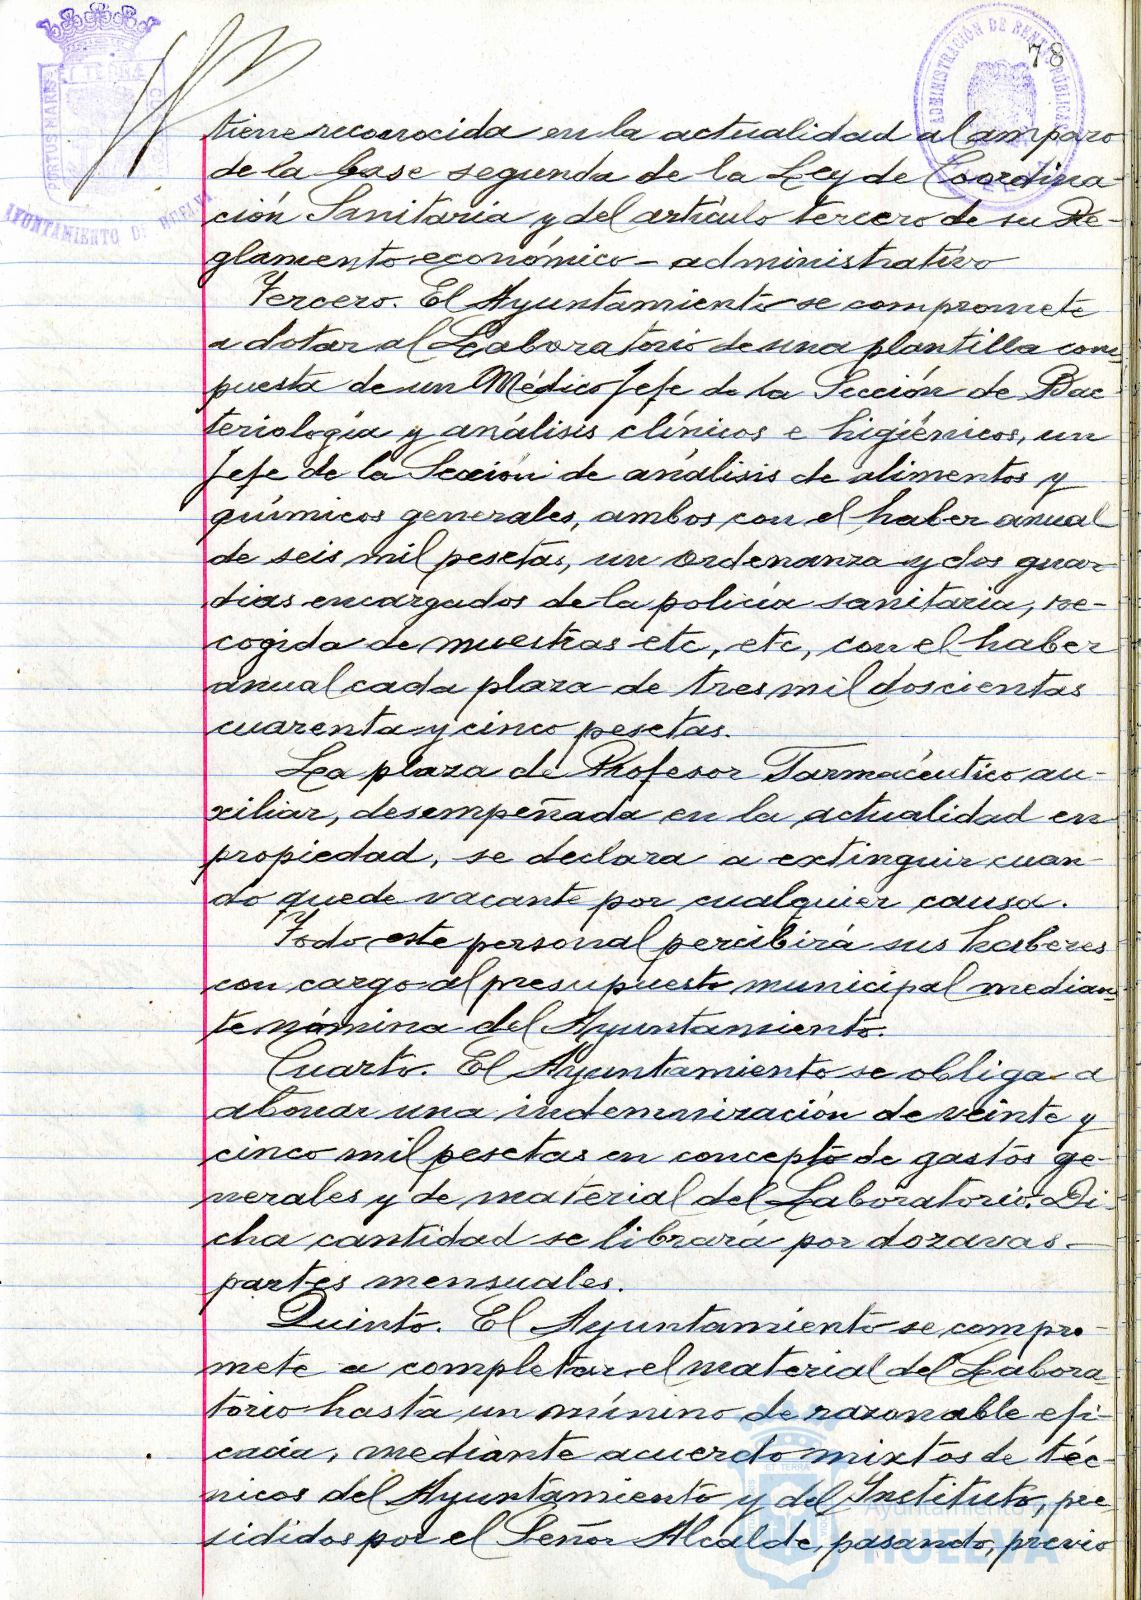 78
PORTUS MARIS ET TERRÆ CUSTODIA
AYUNTAMIENTO DE HUELVA
ADMINISTRACIÓN DE RENTAS PÚBLICAS
tiene reconocida en la actualidad al amparo
de la base segunda de la Ley de Coordina-
ción Sanitaria y del artículo tercero de su Re-
glamento económico-administrativo
Tercero. El Ayuntamiento se compromete
a dotar al Laboratorio de una plantilla com-
puesta de un Médico Jefe de la Sección de Bac-
teriología y análisis clínicos e higiénicos, un
Jefe de la Sección de análisis de alimentos y
químicos generales, ambos con el haber anual
de seis mil pesetas, un ordenanza y dos guar-
dias encargados de la policía sanitaria, re-
cogida de muestras etc, etc, con el haber
anual cada plaza de tres mil doscientas
cuarenta y cinco pesetas.
La plaza de Profesor Farmacéutico au-
xiliar, desempeñada en la actualidad en
propiedad, se declara a extinguir cuan-
do quede vacante por cualquier causa.
Todo este personal percibirá sus haberes
con cargo al presupuesto municipal median-
te nómina del Ayuntamiento.
Cuarto. El Ayuntamiento se obliga a
abonar una indemnización de veinte y
cinco mil pesetas en concepto de gastos ge-
nerales y de material del Laboratorio. Di-
cha cantidad se librará por dozavas
partes mensuales.
Quinto. El Ayuntamiento se compro-
mete a completar el material del Labora-
torio hasta un mínino de razonable efi-
cacia, mediante acuerdo mixtos de téc-
nicos del Ayuntamiento y del Instituto, pre-
sididos por el Señor Alcalde, pasando, previo
Ayuntamiento de
HUELVA